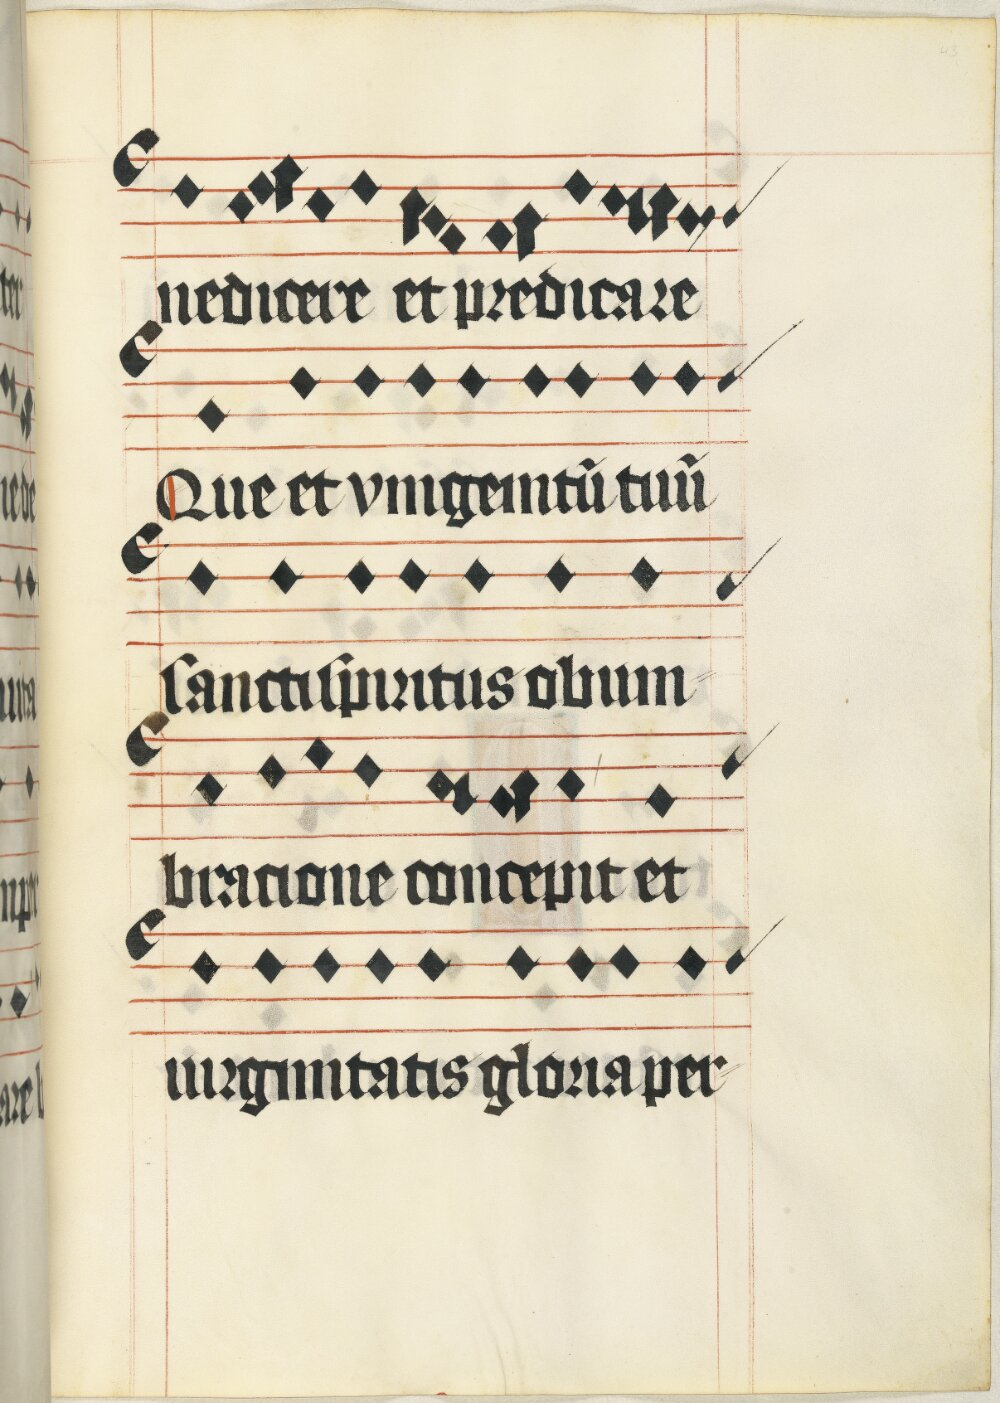 nedicere et predicare
Que et vnigenitū tuū
sancti spiritus obum-
bracione concepit et
uirginitatis gloria per-